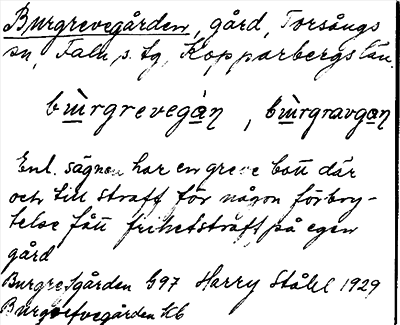 Burgrevegården, gård, Torsångs
sn, Falu s. tg, Kopparbergs län.
bu̲rgrevegȧ̲n, bu̲rgravga̲n
Enl. sägnen har en greve bott där
och till straff för någon förbry-
telse fått frihetsstraff på egen
gård
Burgrefgården G97 Harry Ståhl 1929
Burgrefvegården Kb